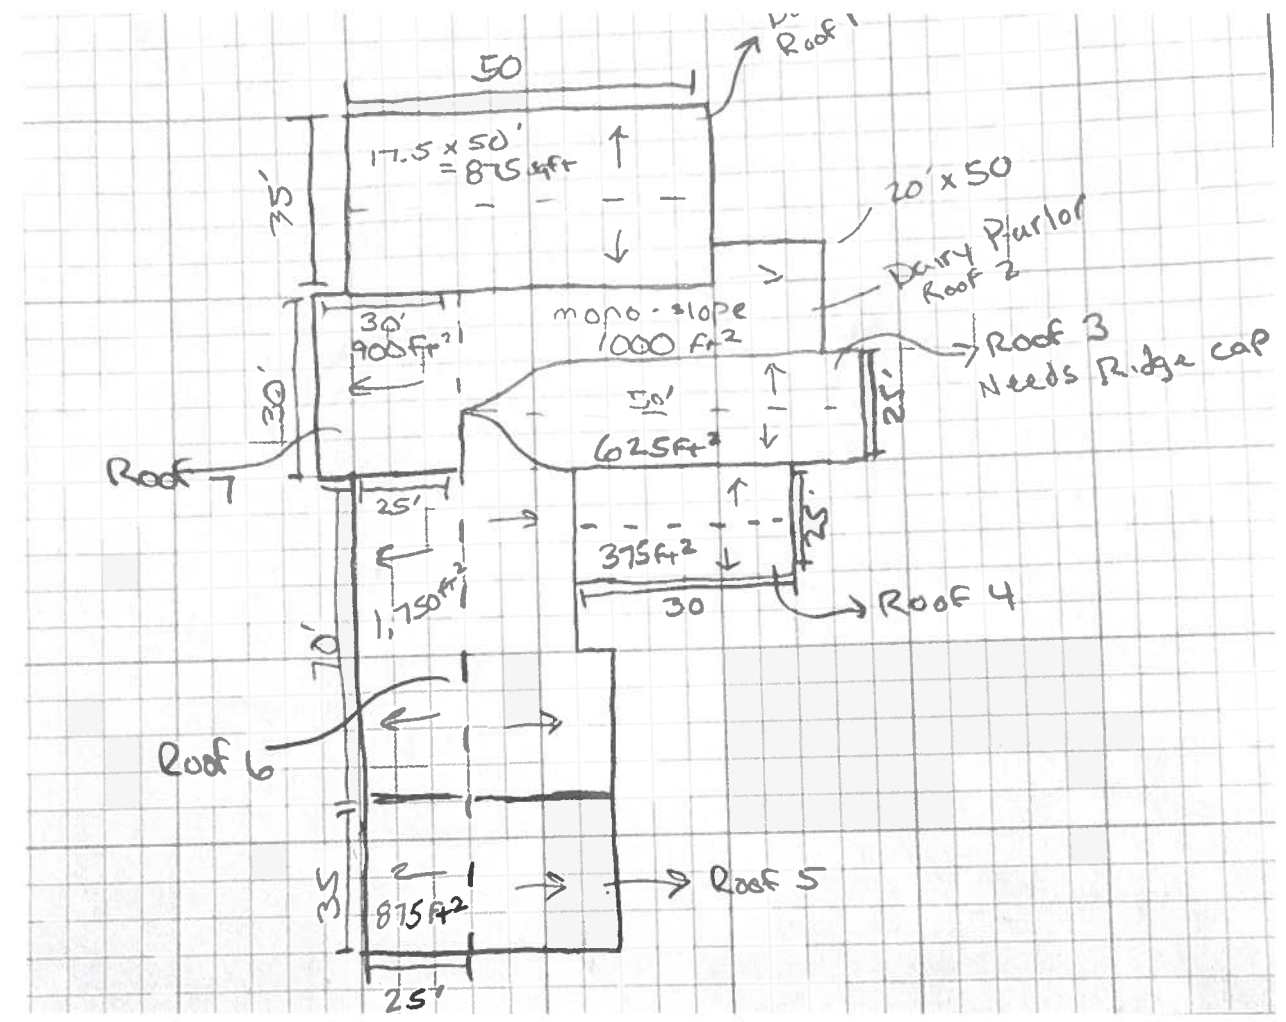 Roof 1
50
17.5 x 50'
= 875 sqft
35'
20' x 50
Dairy Parlor
Roof 2
mono-slope
1000 ft²
30'
900 ft²
30'
Roof 3
Needs Ridge cap
50'
625 ft²
25'
Roof 7
25'
375 ft²
25'
30
Roof 4
1,750 ft²
70'
Roof 6
35
875 ft²
Roof 5
25'